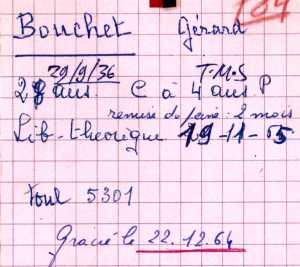 184
Bouchet Gérard
29/9/36 T.M.S
28 ans C à 4 ans P
remise de peine : 2 mois
Lib-théorique 19-11-65
Toul 5301
Gracié le 22.12.64